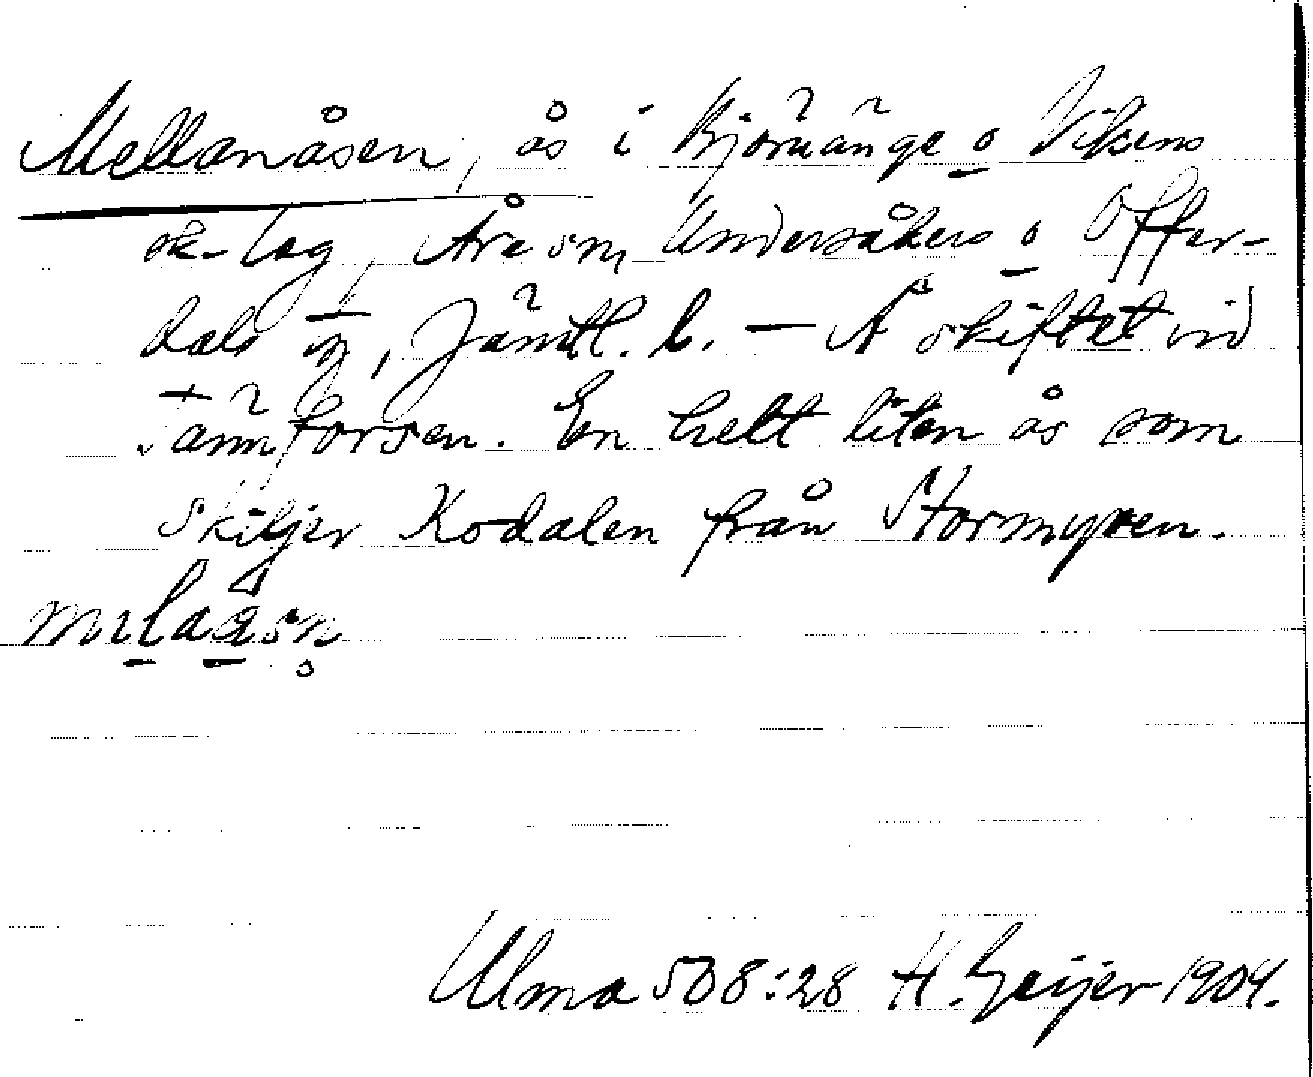 Mellanåsen, ås i Björnänge o Vikens
sk-lag, Åre sn, Undersåkers o Offer-
dals tg, Jämtl. l. — Å skiftet vid
Tännforsen. En helt liten ås som
skiljer Kodalen från Stormyren.
Ulma 508:28 H. Geijer 1904.